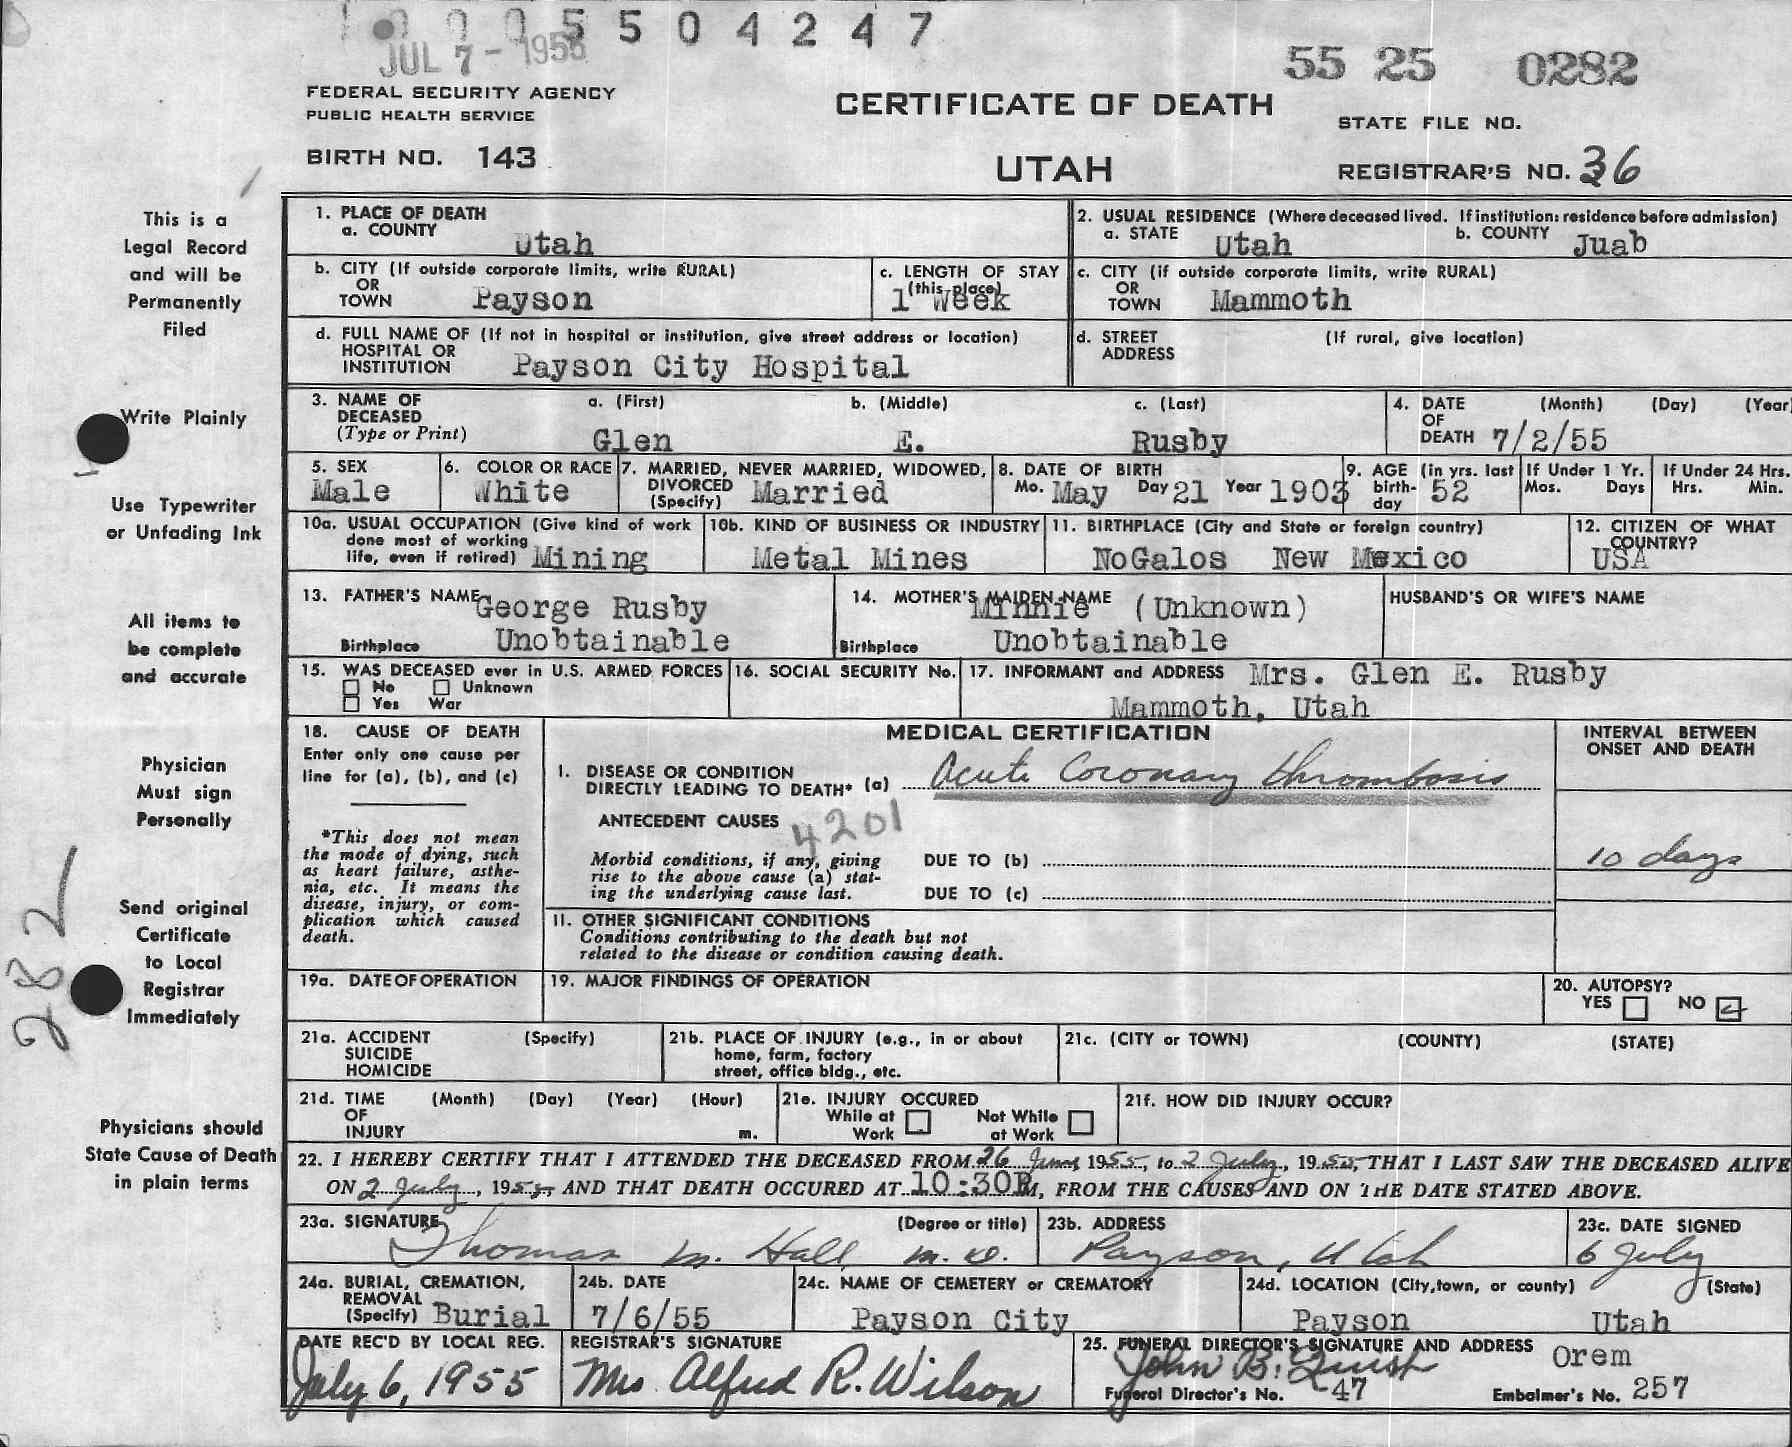 0 0 0 5 5 0 4 2 4 7
JUL 7 - 1955
55 25 0282
FEDERAL SECURITY AGENCY
PUBLIC HEALTH SERVICE
CERTIFICATE OF DEATH
STATE FILE NO.
BIRTH NO. 143
UTAH
REGISTRAR'S NO. 36
This is a
Legal Record
and will be
Permanently
Filed
Write Plainly
Use Typewriter
or Unfading Ink
All items to
be complete
and accurate
Physician
Must sign
Personally
Send original
Certificate
to Local
Registrar
Immediately
Physicians should
State Cause of Death
in plain terms
282
1. PLACE OF DEATH
a. COUNTY Utah
2. USUAL RESIDENCE (Where deceased lived. If institution: residence before admission)
a. STATE Utah b. COUNTY Juab
b. CITY (If outside corporate limits, write RURAL)
OR
TOWN Payson
c. LENGTH OF STAY
(this place)
1 Week
c. CITY (if outside corporate limits, write RURAL)
OR
TOWN Mammoth
d. FULL NAME OF (If not in hospital or institution, give street address or location)
HOSPITAL OR
INSTITUTION Payson City Hospital
d. STREET (If rural, give location)
ADDRESS
3. NAME OF DECEASED a. (First) b. (Middle) c. (Last)
(Type or Print) Glen E. Rusby
4. DATE (Month) (Day) (Year)
OF
DEATH 7/2/55
5. SEX
Male
6. COLOR OR RACE
White
7. MARRIED, NEVER MARRIED, WIDOWED,
DIVORCED
(Specify) Married
8. DATE OF BIRTH
Mo. May Day 21 Year 1903
9. AGE (in yrs. last
birth-
day 52
If Under 1 Yr.
Mos. Days
If Under 24 Hrs.
Hrs. Min.
10a. USUAL OCCUPATION (Give kind of work
done most of working
life, even if retired) Mining
10b. KIND OF BUSINESS OR INDUSTRY
Metal Mines
11. BIRTHPLACE (City and State or foreign country)
NoGalos New Mexico
12. CITIZEN OF WHAT
COUNTRY?
USA
13. FATHER'S NAME George Rusby
Birthplace Unobtainable
14. MOTHER'S MAIDEN NAME Minnie (Unknown)
Birthplace Unobtainable
HUSBAND'S OR WIFE'S NAME
15. WAS DECEASED ever in U.S. ARMED FORCES
No Unknown
Yes War
16. SOCIAL SECURITY No.
17. INFORMANT and ADDRESS Mrs. Glen E. Rusby
Mammoth, Utah
18. CAUSE OF DEATH
Enter only one cause per
line for (a), (b), and (c)
*This does not mean
the mode of dying, such
as heart failure, asthe-
nia, etc. It means the
disease, injury, or com-
plication which caused
death.
MEDICAL CERTIFICATION
I. DISEASE OR CONDITION
DIRECTLY LEADING TO DEATH* (a) Acute Coronary thrombosis
ANTECEDENT CAUSES 4201
Morbid conditions, if any, giving
rise to the above cause (a) stat-
ing the underlying cause last.
DUE TO (b)
DUE TO (c)
II. OTHER SIGNIFICANT CONDITIONS
Conditions contributing to the death but not
related to the disease or condition causing death.
INTERVAL BETWEEN
ONSET AND DEATH
10 days
19a. DATE OF OPERATION
19. MAJOR FINDINGS OF OPERATION
20. AUTOPSY?
YES NO
21a. ACCIDENT (Specify)
SUICIDE
HOMICIDE
21b. PLACE OF INJURY (e.g., in or about
home, farm, factory
street, office bldg., etc.
21c. (CITY or TOWN) (COUNTY) (STATE)
21d. TIME (Month) (Day) (Year) (Hour)
OF
INJURY m.
21e. INJURY OCCURED
While at Work Not While at Work
21f. HOW DID INJURY OCCUR?
22. I HEREBY CERTIFY THAT I ATTENDED THE DECEASED FROM 26 June 1955, to 2 July, 1955, THAT I LAST SAW THE DECEASED ALIVE
ON 2 July, 1955, AND THAT DEATH OCCURED AT 10:30P M, FROM THE CAUSES AND ON THE DATE STATED ABOVE.
23a. SIGNATURE (Degree or title)
Thomas M. Hall M.D.
23b. ADDRESS
Payson, Utah
23c. DATE SIGNED
6 July
24a. BURIAL, CREMATION,
REMOVAL
(Specify) Burial
24b. DATE
7/6/55
24c. NAME OF CEMETERY or CREMATORY
Payson City
24d. LOCATION (City,town, or county) (State)
Payson Utah
DATE REC'D BY LOCAL REG.
July 6, 1955
REGISTRAR'S SIGNATURE
Mrs Alfred R. Wilson
25. FUNERAL DIRECTOR'S SIGNATURE AND ADDRESS Orem
John B.
Funeral Director's No. 47 Embalmer's No. 257